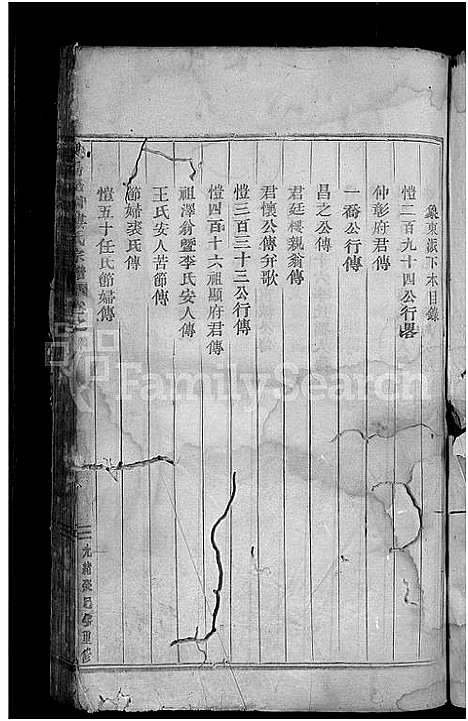 象東派下末目錄
愷二百九十四公行畧
仲彰府君傳
一喬公行傳
昌之公傳
君廷樓親翁傳
君懷公傳弁歌
愷三百三十三公行傳
愷四百十六祖顯府君傳
祖澤翁暨李氏安人傳
王氏安人苦節傳
節婦裘氏傳
愷五十任氏節婦傳
氏宗譜
光緒 重修
FamilySearch